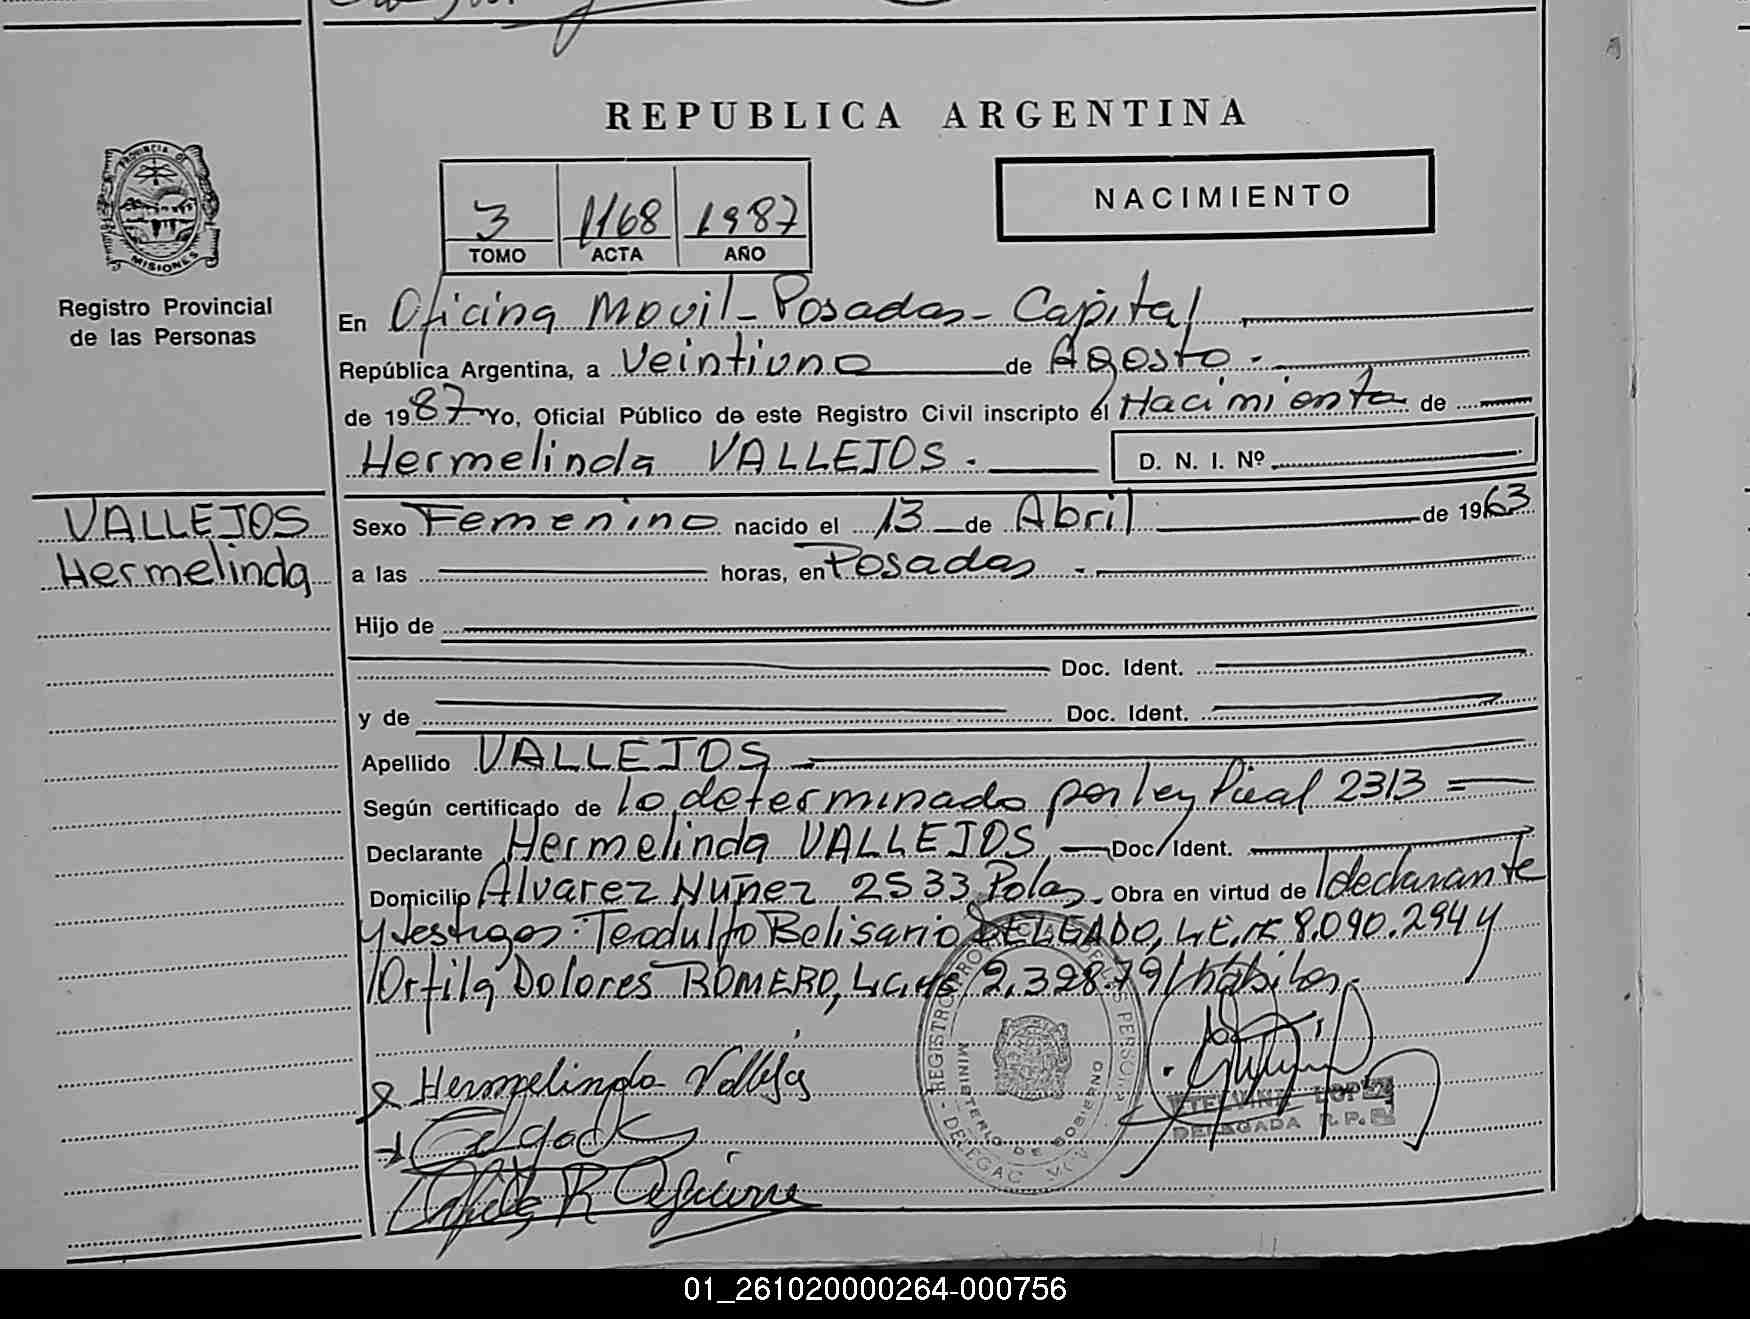 REPUBLICA ARGENTINA
PROVINCIA DE MISIONES
Registro Provincial
de las Personas
3 1168 1987
TOMO ACTA AÑO
NACIMIENTO
En Oficina Movil - Posadas - Capital
República Argentina, a Veintiuno de Agosto.
de 1987 Yo, Oficial Público de este Registro Civil inscripto el Nacimiento de
Hermelinda VALLEJOS. D. N. I. Nº
VALLEJOS
Hermelinda
Sexo Femenino nacido el 13 de Abril de 1963
a las horas, en Posadas.
Hijo de
Doc. Ident.
y de Doc. Ident.
Apellido VALLEJOS
Según certificado de lo determinado por ley 2313
Declarante Hermelinda VALLEJOS, Doc. Ident.
Domicilio Alvarez Nuñez 2533, Obra en virtud de declarante
y testigos: Teodulfo Belisario DELGADO, L.E. nº 8.090.294 y
Ortila Dolores ROMERO, L.C. nº 2.328.791 habiles.
REGISTRO PROVINCIAL DE LAS PERSONAS
MINISTERIO DE GOBIERNO
Hermelinda Vallejos
DELEGADA R.P.
01_261020000264-000756